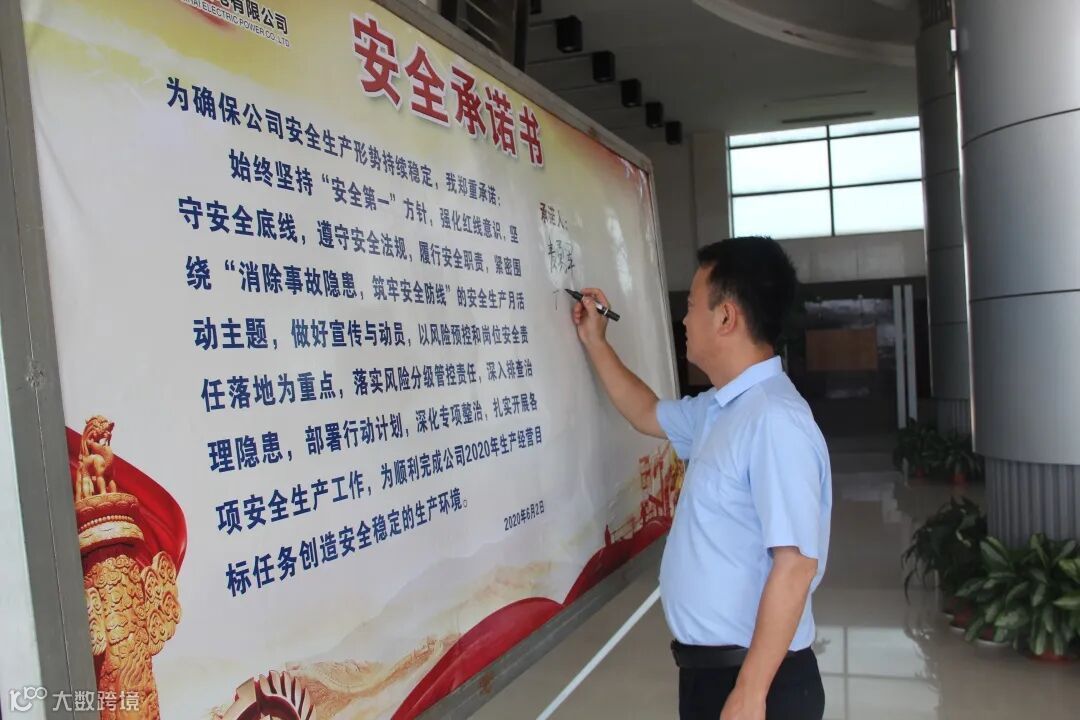 有限公司
ELECTRIC POWER CO.,LTD
安全承诺书
为确保公司安全生产形势持续稳定，我郑重承诺：
始终坚持“安全第一”方针，强化红线意识，坚
守安全底线，遵守安全法规，履行安全职责，紧密围
绕“消除事故隐患，筑牢安全防线”的安全生产月活
动主题，做好宣传与动员，以风险预控和岗位安全责
任落地为重点，落实风险分级管控责任，深入排查治
理隐患，部署行动计划，深化专项整治，扎实开展各
项安全生产工作，为顺利完成公司2020年生产经营目
标任务创造安全稳定的生产环境。
2020年6月2日
承诺人：
大数跨境